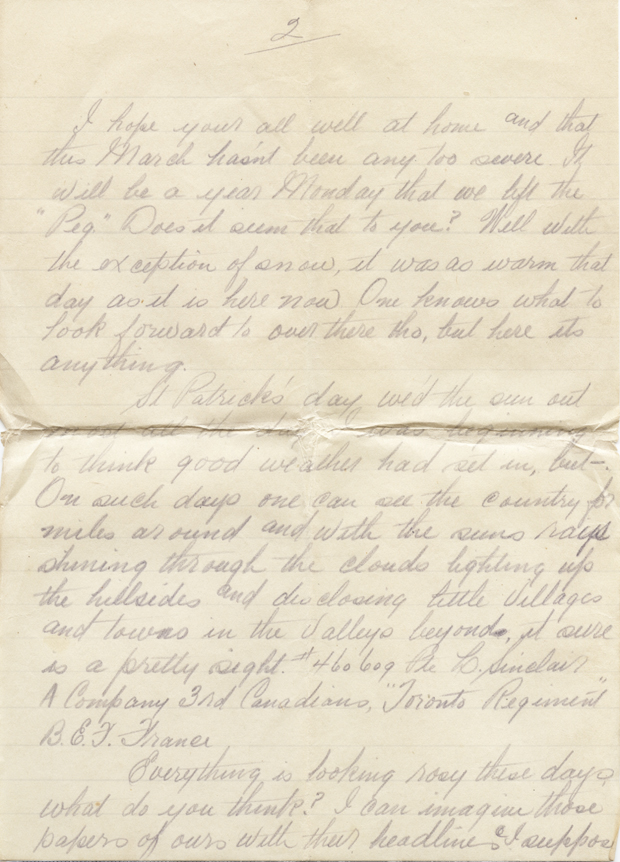 2
I hope your all well at home and that
this March hasn't been any too severe It
will be a year Monday that we left the
"Peg" Does it seem that to you? Well with
the exception of snow, it was as warm that
day as it is here now One knows what to
look forward to over there tho, but here its
anything.
St Patrick's day we'd the sun out
most all the day I was beginning
to think good weather had set in, but—.
On such days one can see the country for
miles around and with the suns rays
shining through the clouds lighting up
the hillsides and disclosing little Villages
and towns in the Valleys beyond, it sure
is a pretty sight. #460609 Pte L. Sinclair
A Company 3rd Canadians, "Toronto Regiment"
B.E.F. France
Everything is looking rosy these days
what do you think? I can imagine those
papers of ours with their headlines I suppose